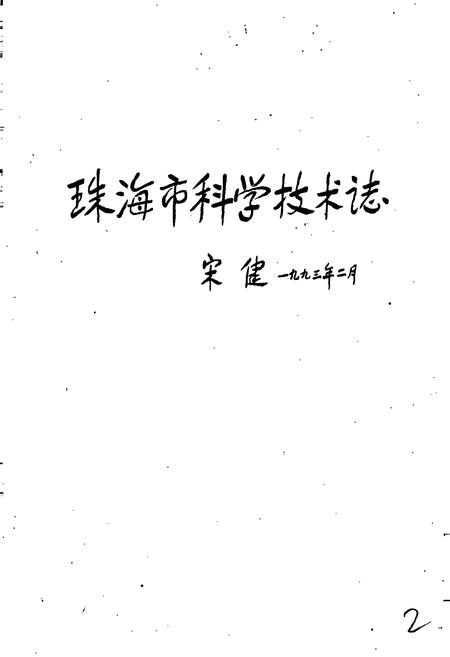 珠海市科学技术誌
宋健 一九九三年二月
2